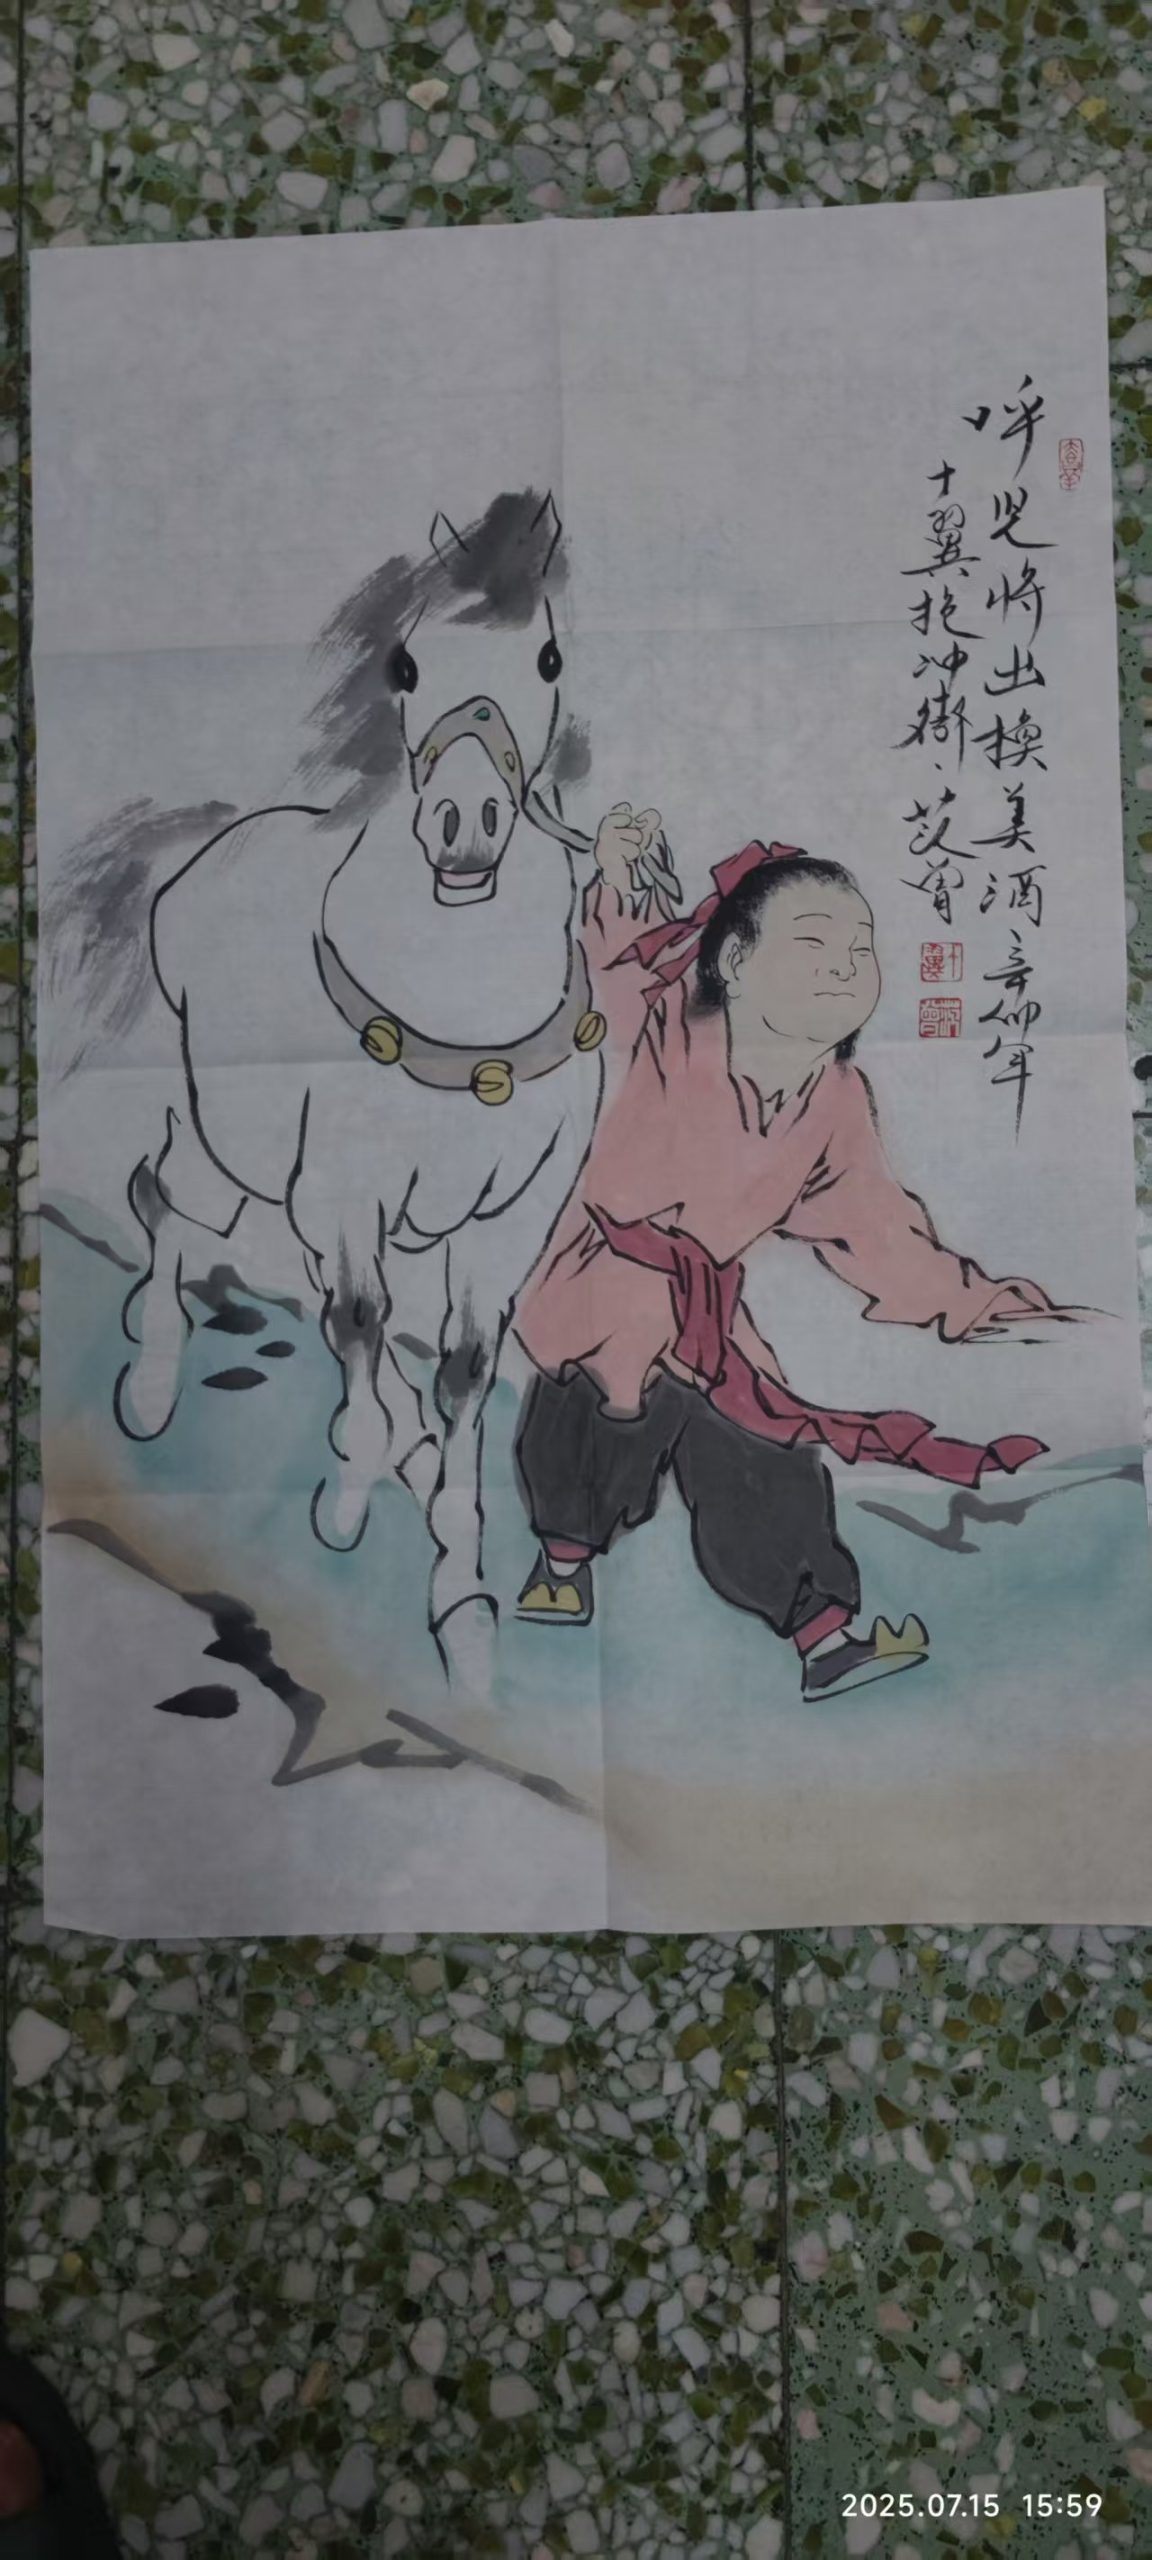 呼児将出換美酒辛卯年
十翼抱冲斋艾曾
十翼
2025.07.15 15:59